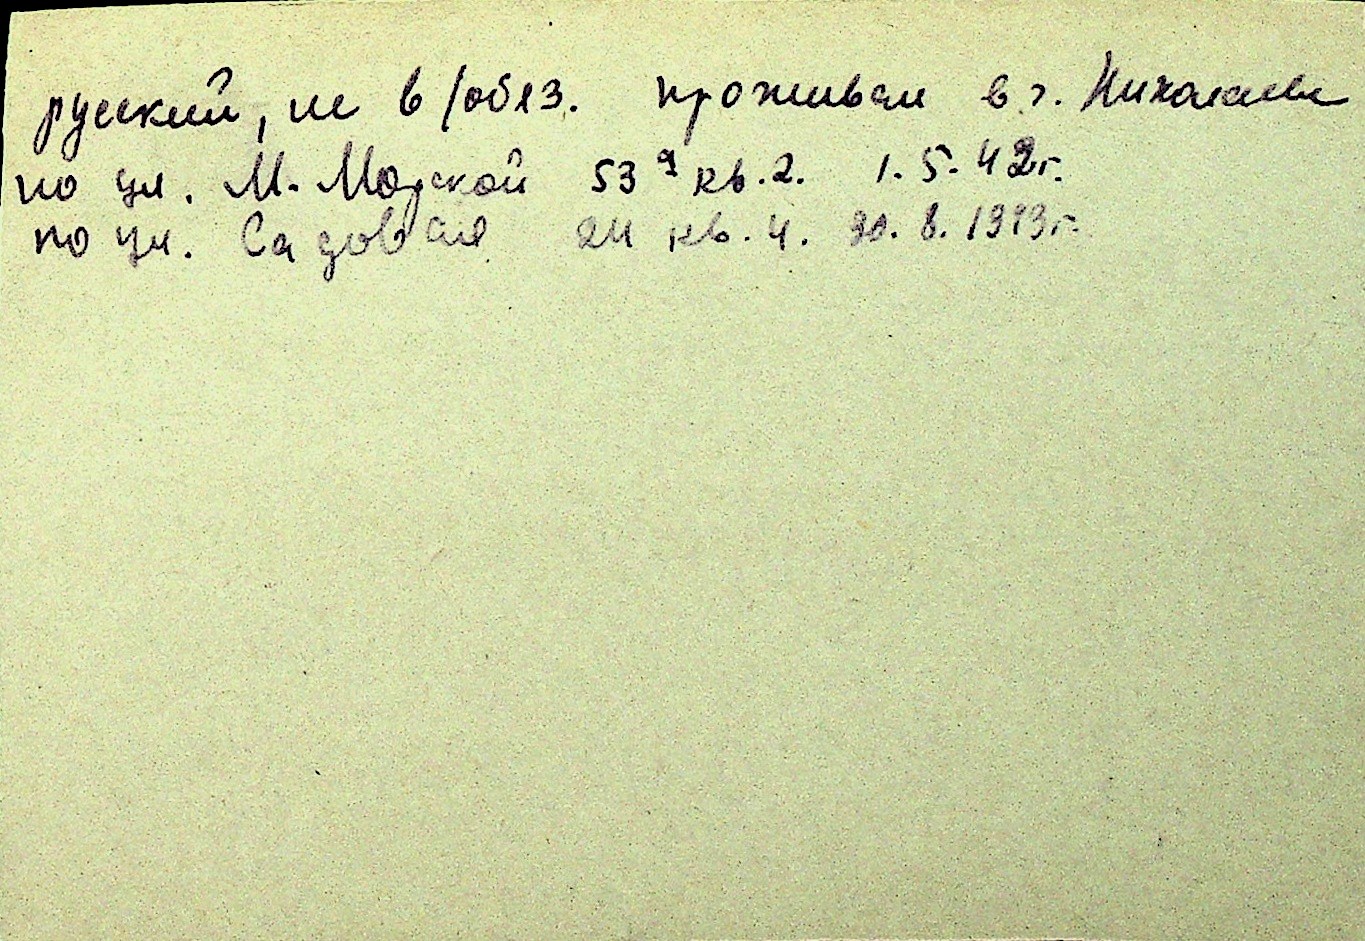 русский, не в/обяз. проживал в г. Николаеве
по ул. М. Морской 53 а кв. 2. 1. 5. 42г.
по ул. Садовая 24 кв. 4. 20. 8. 1943г.